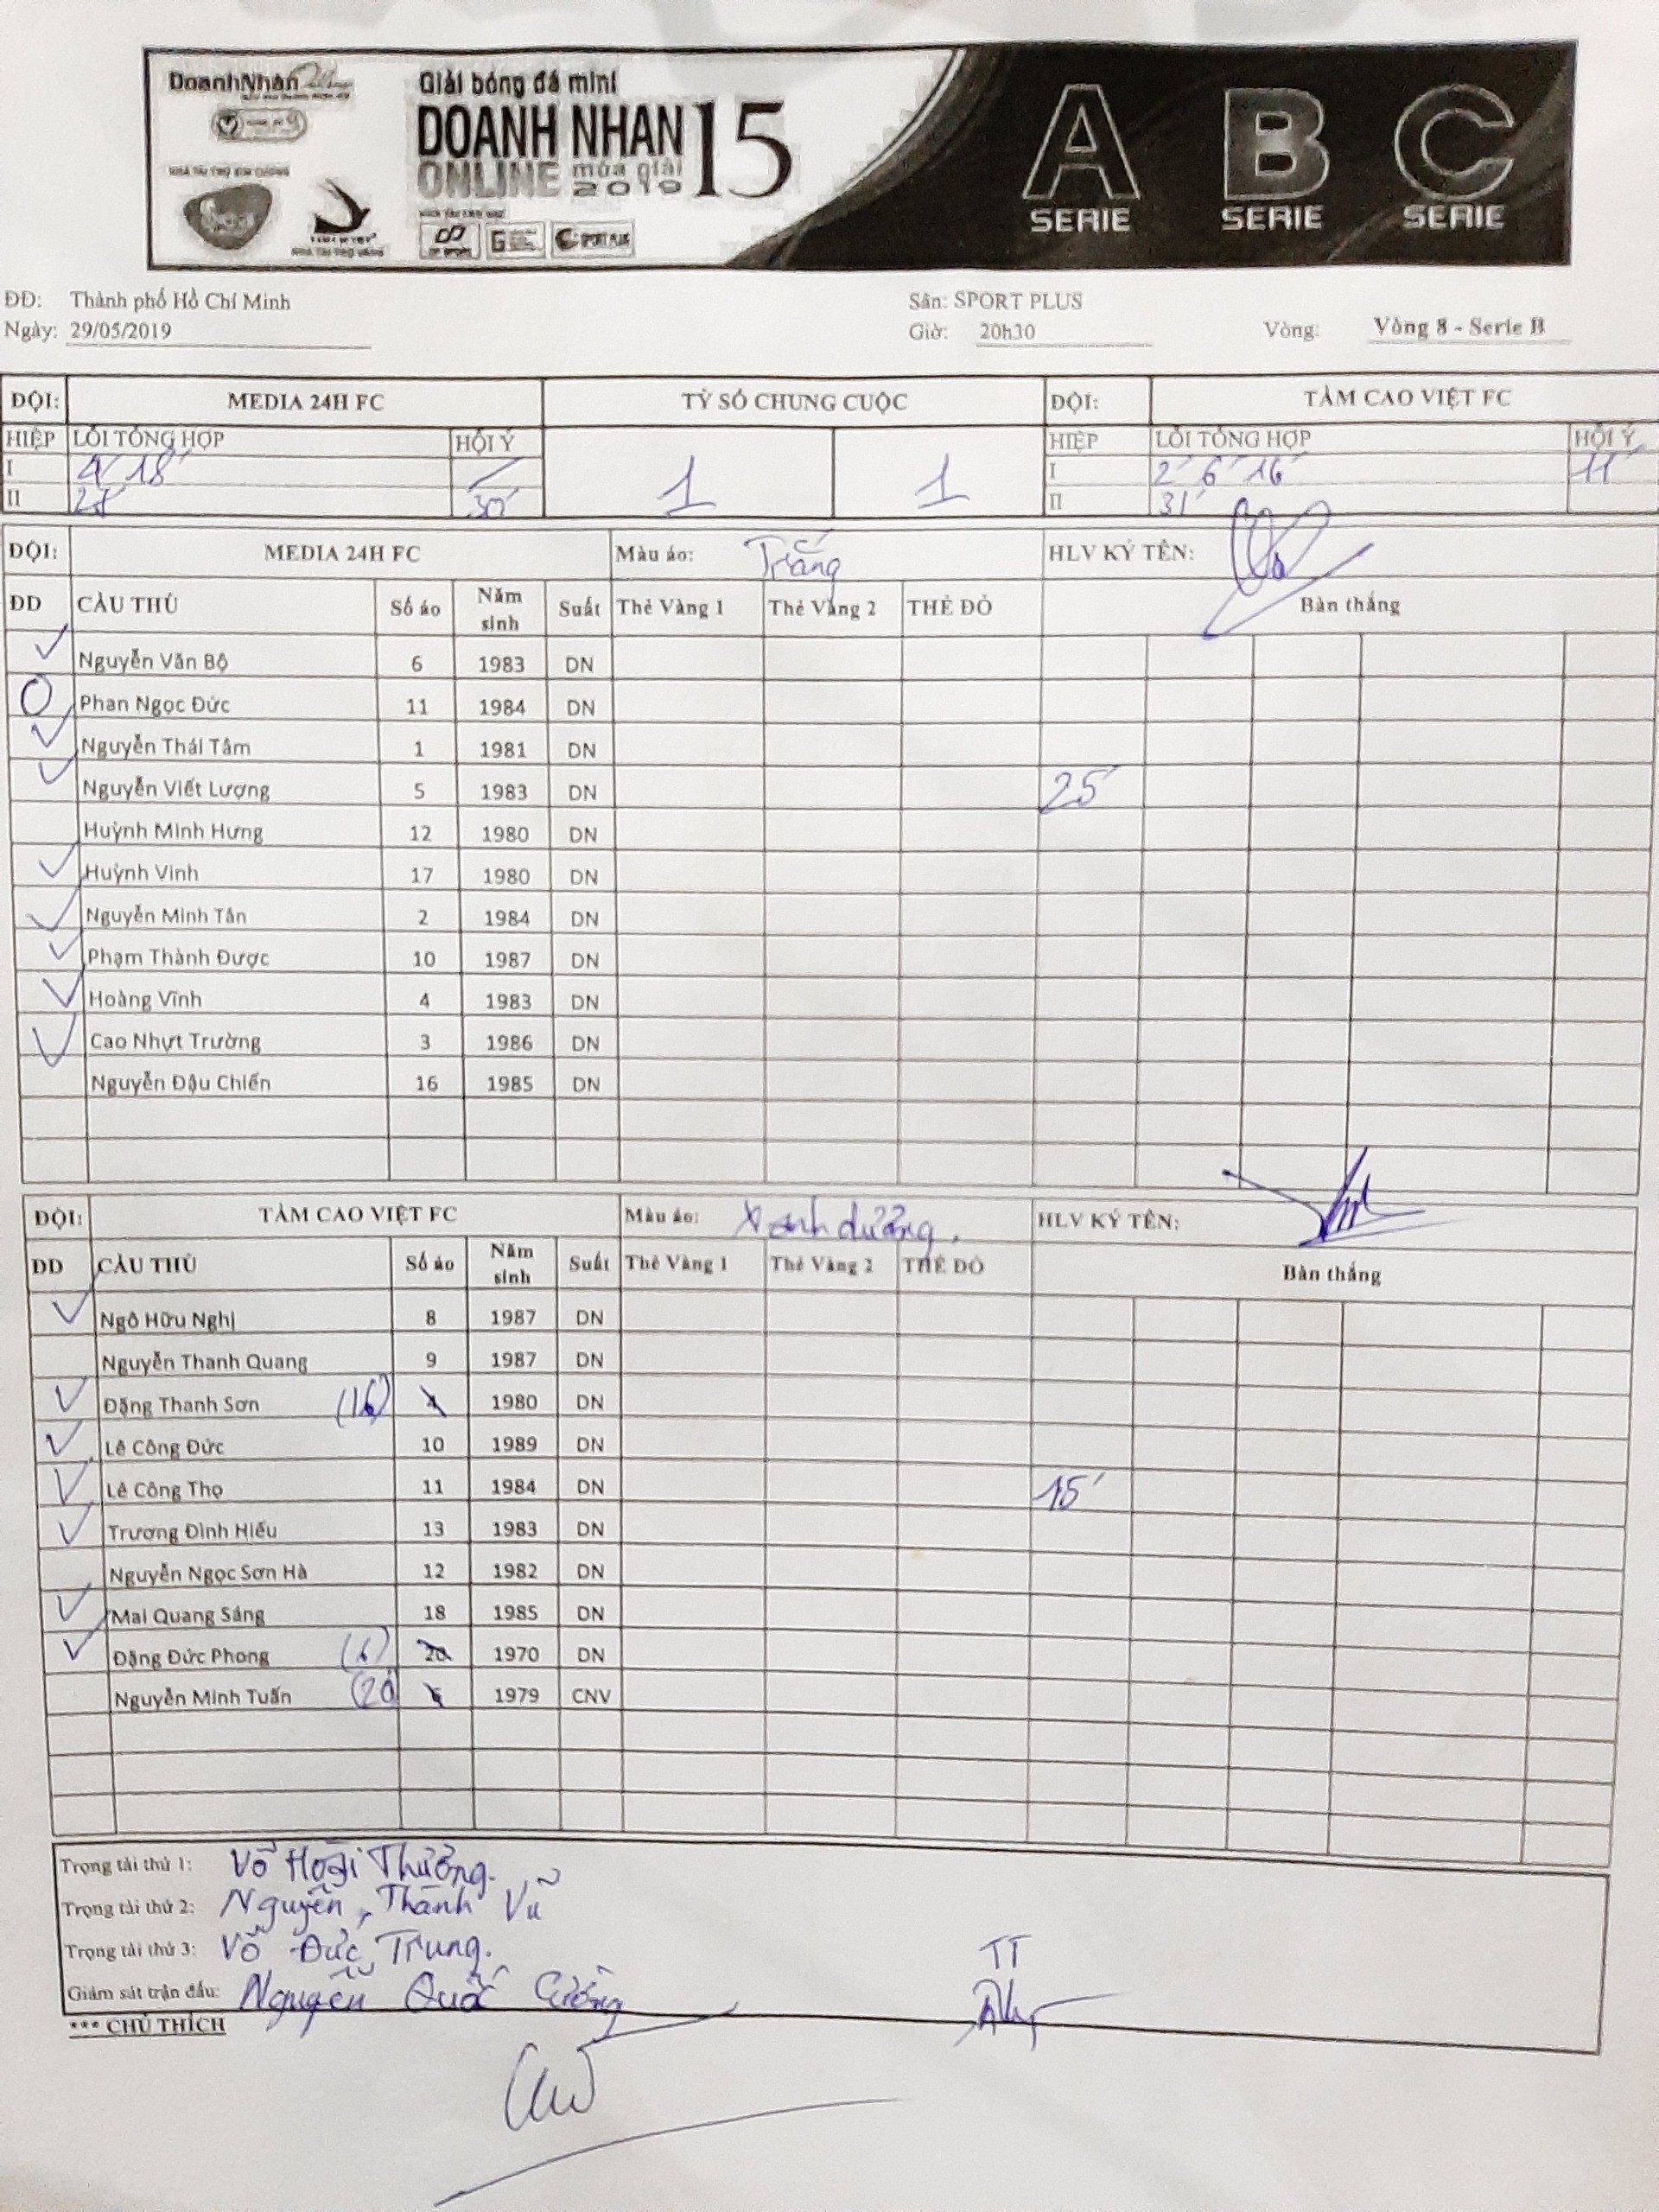 DoanhNhân
Giải bóng đá mini
DOANH NHAN 15
ONLINE mùa giải 2019
A B C
SERIE SERIE SERIE
NHÀ TÀI TRỢ KIM CƯƠNG
NHÀ TÀI TRỢ VÀNG
SPORT PLUS
ĐĐ: Thành phố Hồ Chí Minh Sân: SPORT PLUS
Ngày: 29/05/2019 Giờ: 20h30 Vòng: Vòng 8 - Serie B
ĐỘI: MEDIA 24H FC TỶ SỐ CHUNG CUỘC ĐỘI: TẦM CAO VIỆT FC
HIỆP LỖI TỔNG HỢP HỘI Ý 1 1 HIỆP LỖI TỔNG HỢP HỘI Ý
I 4' 18' I 2' 6' 16' 11'
II 30' II 31'
ĐỘI: MEDIA 24H FC Màu áo: Trắng HLV KÝ TÊN:
ĐD CẦU THỦ Số áo Năm sinh Suất Thẻ Vàng 1 Thẻ Vàng 2 THẺ ĐỎ Bàn thắng
Nguyễn Văn Bộ 6 1983 DN
Phan Ngọc Đức 11 1984 DN
Nguyễn Thái Tâm 1 1981 DN
Nguyễn Viết Lượng 5 1983 DN 25'
Huỳnh Minh Hưng 12 1980 DN
Huỳnh Vinh 17 1980 DN
Nguyễn Minh Tân 2 1984 DN
Phạm Thành Được 10 1987 DN
Hoàng Vĩnh 4 1983 DN
Cao Nhựt Trường 3 1986 DN
Nguyễn Đậu Chiến 16 1985 DN
ĐỘI: TẦM CAO VIỆT FC Màu áo: Xanh dương. HLV KÝ TÊN:
ĐD CẦU THỦ Số áo Năm sinh Suất Thẻ Vàng 1 Thẻ Vàng 2 THẺ ĐỎ Bàn thắng
Ngô Hữu Nghị 8 1987 DN
Nguyễn Thanh Quang 9 1987 DN
Đặng Thanh Sơn (16) 1980 DN
Lê Công Đức 10 1989 DN
Lê Công Thọ 11 1984 DN 15'
Trương Đình Hiếu 13 1983 DN
Nguyễn Ngọc Sơn Hà 12 1982 DN
Mai Quang Sáng 18 1985 DN
Đặng Đức Phong (6) 20 1970 DN
Nguyễn Minh Tuấn (20) 1979 CNV
Trọng tài thứ 1: Võ Hoài Thương.
Trọng tài thứ 2: Nguyễn Thành Vũ
Trọng tài thứ 3: Võ Đức Trung. TT
Giám sát trận đấu: Nguyễn Quốc Cường
*** CHÚ THÍCH